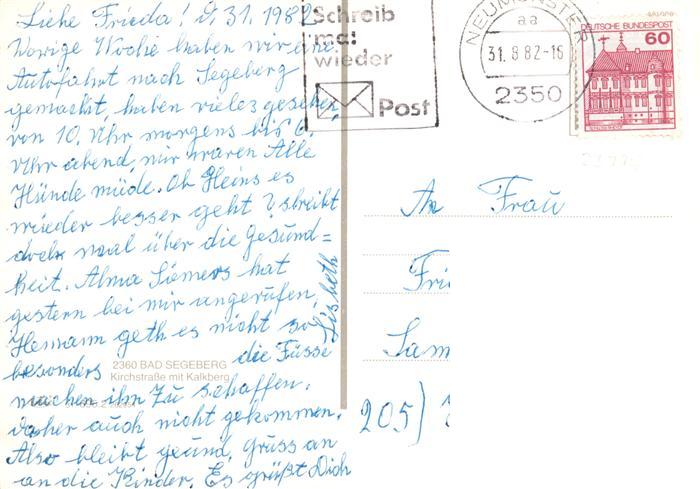 Liebe Frieda! D, 31. 1982
Worige Woche haben wir eine
Autofahrt nach Segeberg
gemacht, haben vieles gesehen
von 10. Uhr morgens bis 6.
Uhr abend, wir waren Alle
Hünde müde. Ob Heins es
wieder besser geht? streibt
doch maal über die Gesund=
heit. Alma Siemers hat
gestern bei mir angerufen,
Hemann geth es nicht so
besonders die Füsse
2360 BAD SEGEBERG
Kirchstraße mit Kalkberg
machen ihn Zu schaffen,
daher auch nicht gekommen.
Also bleibt geund, Gruss an
an die Kinder. Es grüßt Dich
Lisbeth
Schreib
mal
wieder
Post
NEUMÜNSTER
aa
31.8.82-15
2350
DEUTSCHE BUNDESPOST
60
An Frau
Fri
Sam
205)